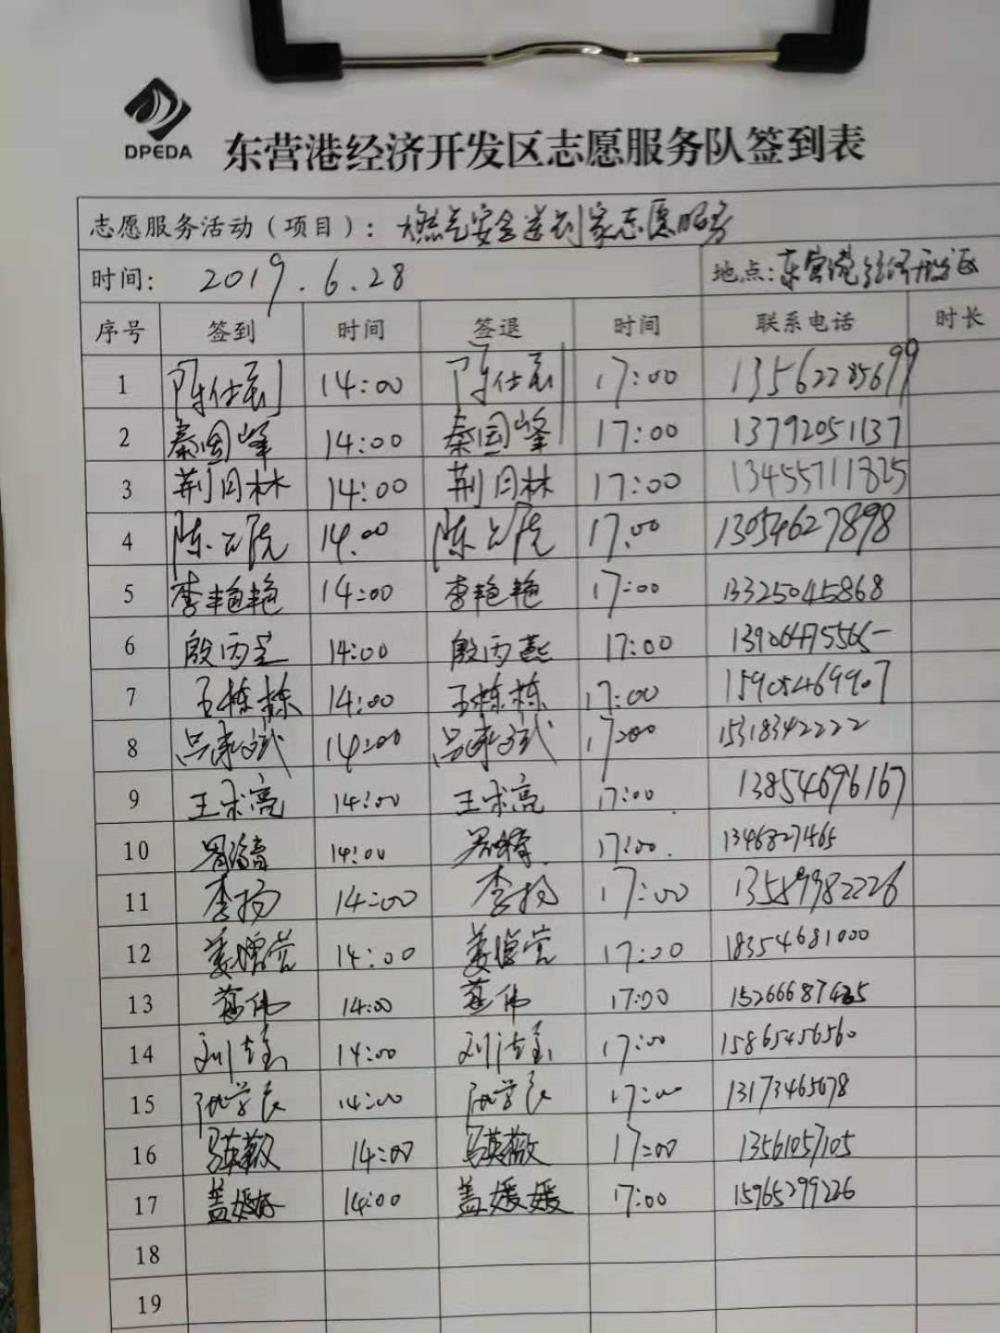 DPEDA
东营港经济开发区志愿服务队签到表
志愿服务活动（项目）：燃气安全送到家志愿服务
时间： 2019.6.28 地点：东营港经济开发区
序号 签到 时间 签退 时间 联系电话 时长
1 14:00 17:00
2 秦国峰 14:00 秦国峰 17:00 13792051137
3 荆曰林 14:00 荆曰林 17:00 13455711825
4 陈 14.00 陈 17.00 13054627898
5 李艳艳 14:00 李艳艳 17:00 13325045868
6 殷丙 14:00 殷丙 17:00
7 王栋栋 14:00 王栋栋 17:00 15905469907
8 14:00 17:00 15318342222
9 王 亮 14:00 王 亮 17:00 13854696167
10 14:00 17:00 1346827465
11 李扬 14:00 李扬 17:00 13589982226
12 姜 14:00 姜 17:00 18354681000
13 伟 14:00 伟 17:00
14 刘 14:00 刘 17:00 15865456560
15 14:00 17:00 13173465678
16 马英薇 14:00 马英薇 17:00 13561057105
17 盖媛媛 14:00 盖媛媛 17:00 15965299226
18
19